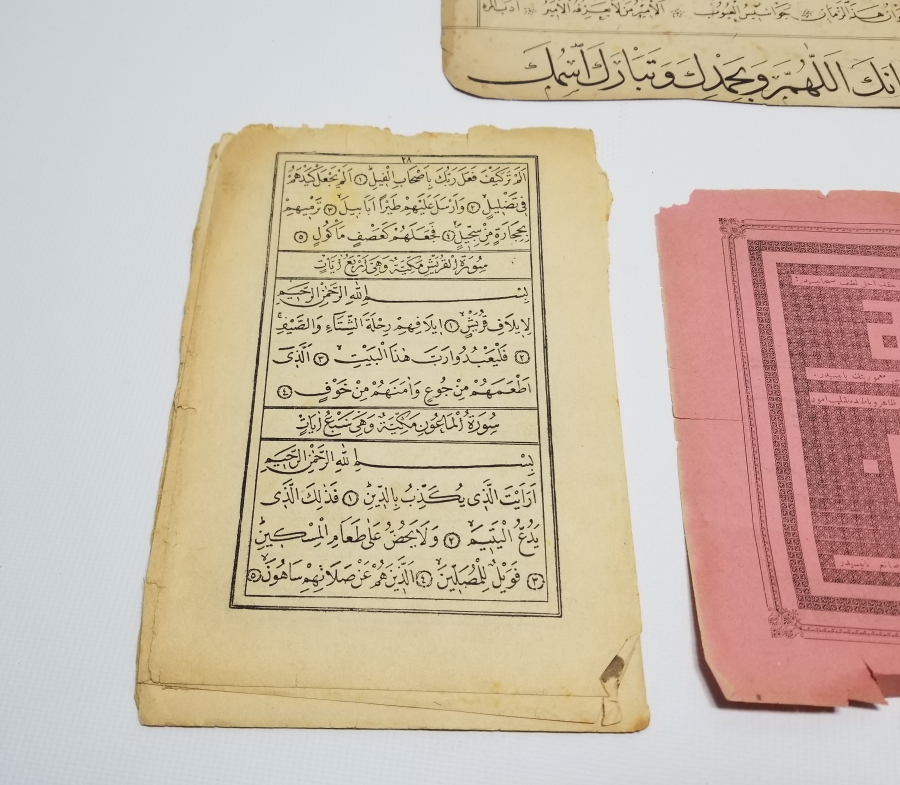 الأمير من لا يعرفه الأمير
انك اللهم وبحمدك وتبارك اسمك
٢٨
اَلَمْ تَرَ كَيْفَ فَعَلَ رَبُّكَ بِاَصْحَابِ الْفِيلِ ١ اَلَمْ يَجْعَلْ كَيْدَهُمْ
فِى تَضْلِيلٍ ٢ وَاَرْسَلَ عَلَيْهِمْ طَيْرًا اَبَابِيلَ ٣ تَرْمِيهِمْ
بِحِجَارَةٍ مِنْ سِجِّيلٍ ٤ فَجَعَلَهُمْ كَعَصْفٍ مَاْكُولٍ ٥
سُورَةُ الْقُرَيْشِ مَكِّيَّةٌ وَهِىَ اَرْبَعُ اٰيَاتٍ
بِسْــــمِ اللهِ الرَّحْمٰنِ الرَّحِيمِ
لِاِيلَافِ قُرَيْشٍ ١ اِيلَافِهِمْ رِحْلَةَ الشِّتَاءِ وَالصَّيْفِ
٢ فَلْيَعْبُدُوا رَبَّ هٰذَا الْبَيْتِ ٣ اَلَّذِى
اَطْعَمَهُمْ مِنْ جُوعٍ وَاٰمَنَهُمْ مِنْ خَوْفٍ ٤
سُورَةُ الْمَاعُونِ مَكِّيَّةٌ وَهِىَ سَبْعُ اٰيَاتٍ
بِسْــــمِ اللهِ الرَّحْمٰنِ الرَّحِيمِ
اَرَاَيْتَ الَّذِى يُكَذِّبُ بِالدِّينِ ١ فَذٰلِكَ الَّذِى
يَدُعُّ الْيَتِيمَ ٢ وَلَا يَحُضُّ عَلٰى طَعَامِ الْمِسْكِينِ
٣ فَوَيْلٌ لِلْمُصَلِّينَ ٤ اَلَّذِينَ هُمْ عَنْ صَلَاتِهِمْ سَاهُونَ ٥